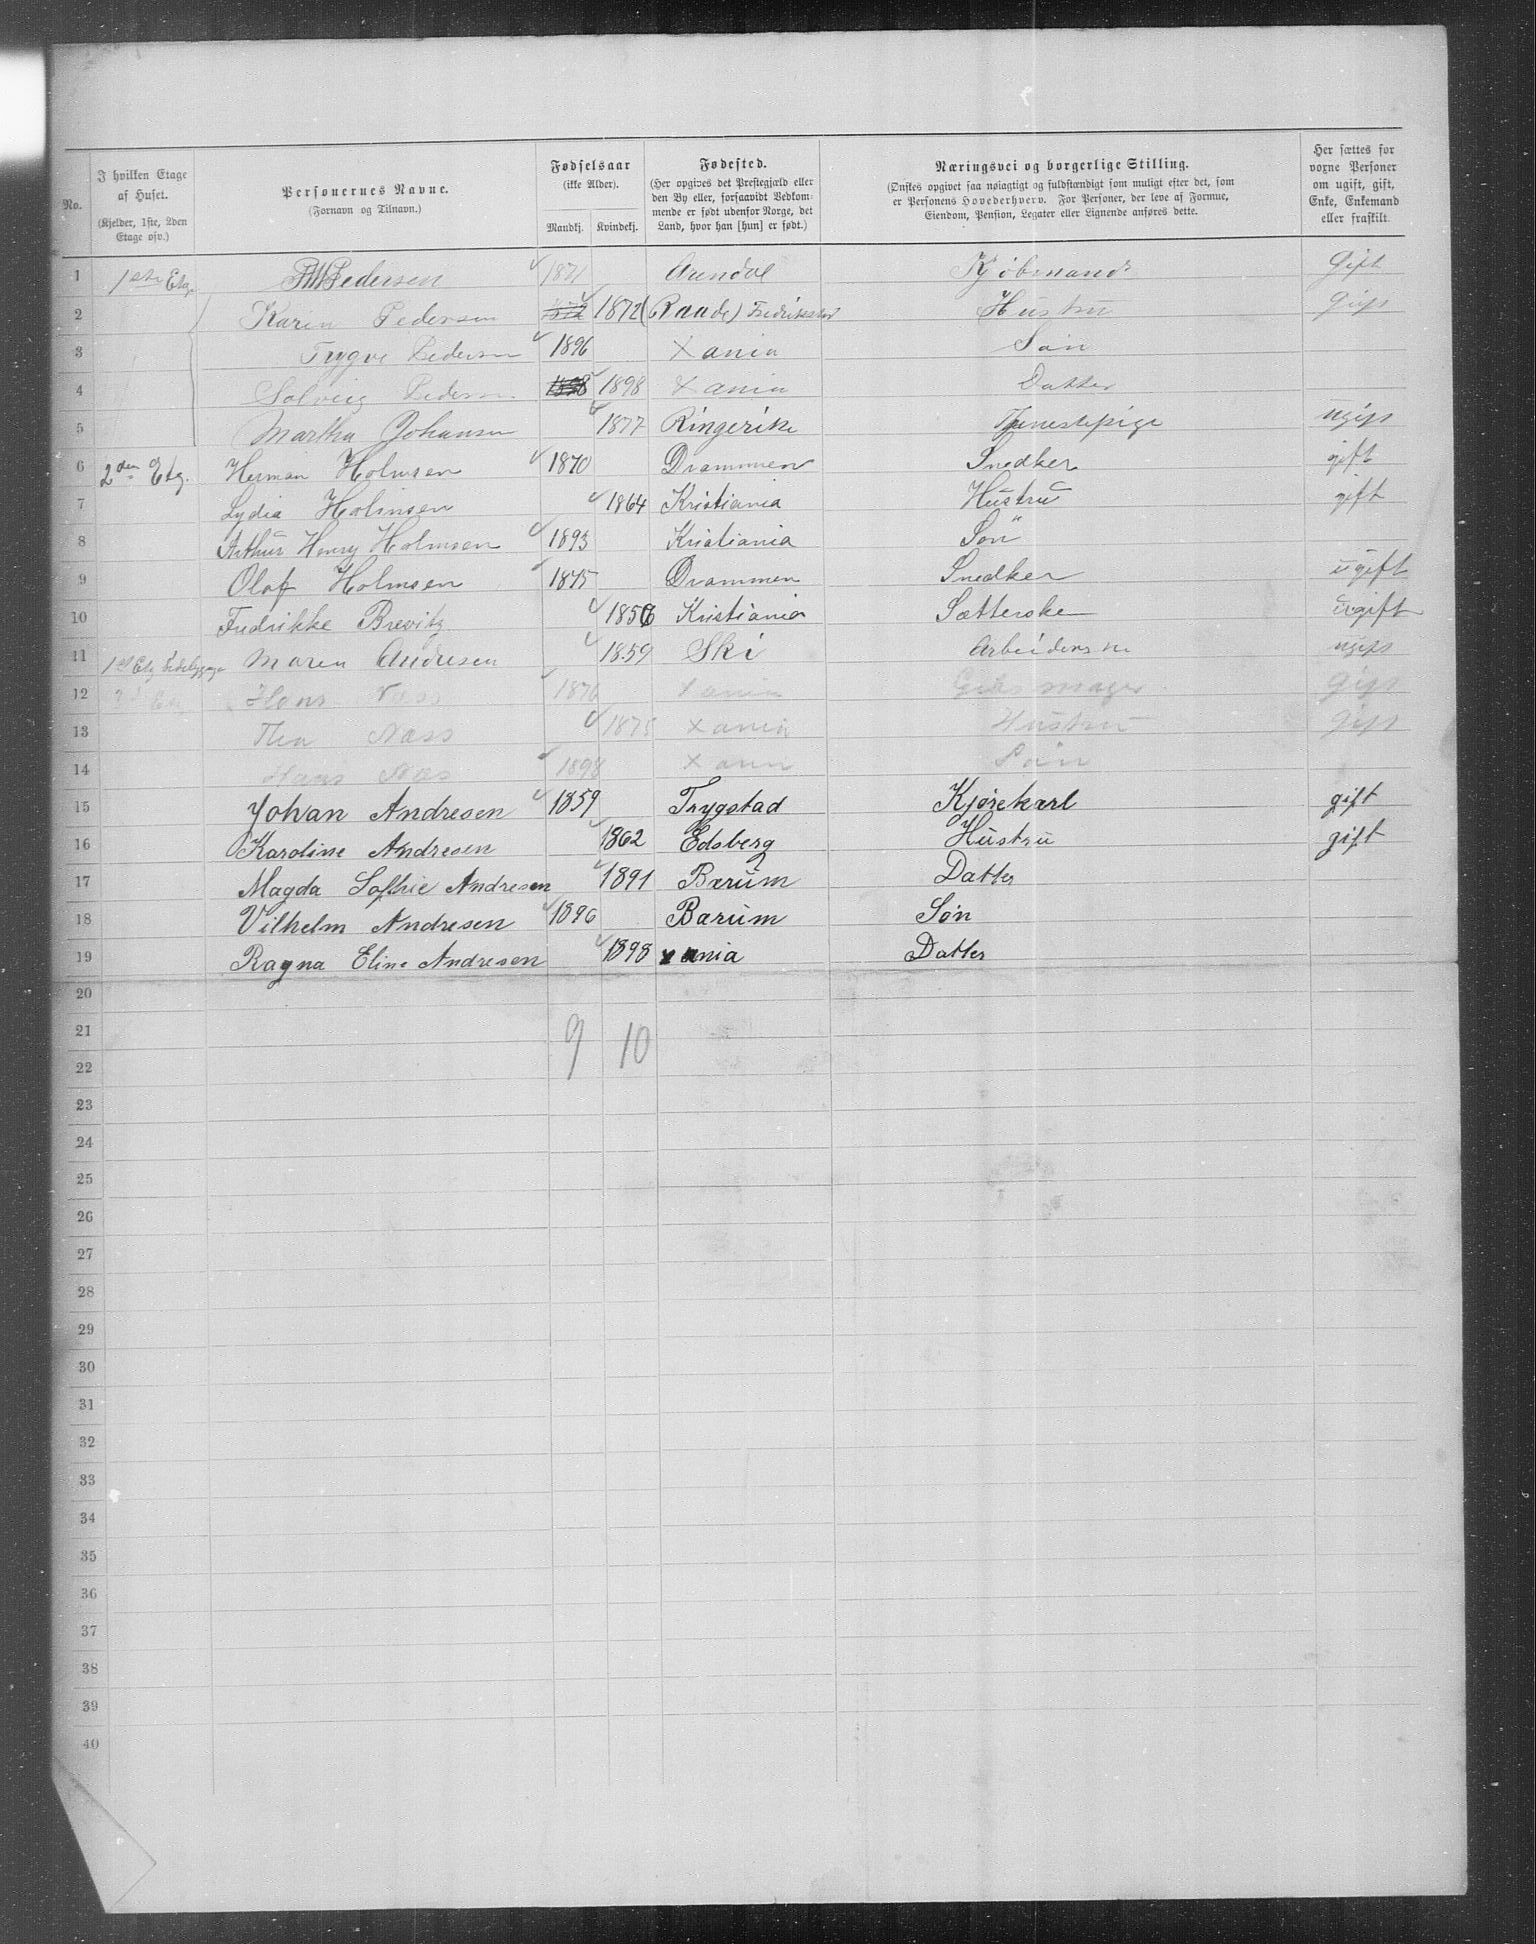 No. I hvilken Etage af Huset. (Kjelder, 1ste, 2den Etage osv.) Personernes Navne. (Fornavn og Tilnavn.) Fødselsaar (ikke Alder). Mandkj. Kvindekj. Fødested. (Her opgives det Prestegjæld eller den By eller, forsaavidt Vedkommende er født udenfor Norge, det Land, hvor han [hun] er født.) Næringsvei og borgerlige Stilling. (Ønskes opgivet saa nøiagtigt og fuldstændigt som muligt efter det, som er Personens Hovederhverv. For Personer, der leve af Formue, Eiendom, Pension, Legater eller Lignende anføres dette. Her sættes for voxne Personer om ugift, gift, Enke, Enkemand eller fraskilt.
1 1ste Etg. Pedersen 1871 Arendal Kjøbmand Gift
2 Karen Pedersen 1872 1872 (Raade) Fredrikstad Hustru Gift
3 Trygve Pedersen 1896 Xania Søn
4 Solveig Pedersen 1898 1898 Xania Datter
5 Martha Johansen 1877 Ringerike Tjenestepige ugift
6 2den Etg. Herman Holmsen 1870 Drammen Snedker gift
7 Lydia Holmsen 1864 Kristiania Hustru gift
8 Arthur Henry Holmsen 1893 Kristiania Søn
9 Olaf Holmsen 1875 Drammen Snedker ugift
10 Fredrikke Brevitz 1856 Kristiania Sætterske ugift
11 1st Etg Sidebygge Maren Andresen 1859 Ski Arbeiderske ugift
12 Hans Næss 1876 Xania gift
13 Thea Næss 1875 Xania Hustru gift
14 Hans Næs 1898 Xania Søn
15 Johan Andresen 1859 Trygstad Kjørekarl gift
16 Karoline Andresen 1862 Edsberg Hustru gift
17 Magda Sofhie Andresen 1891 Bærum Datter
18 Vilhelm Andresen 1896 Bærum Søn
19 Ragna Eline Andresen 1898 xania Datter
20
21 9 10
22
23
24
25
26
27
28
29
30
31
32
33
34
35
36
37
38
39
40